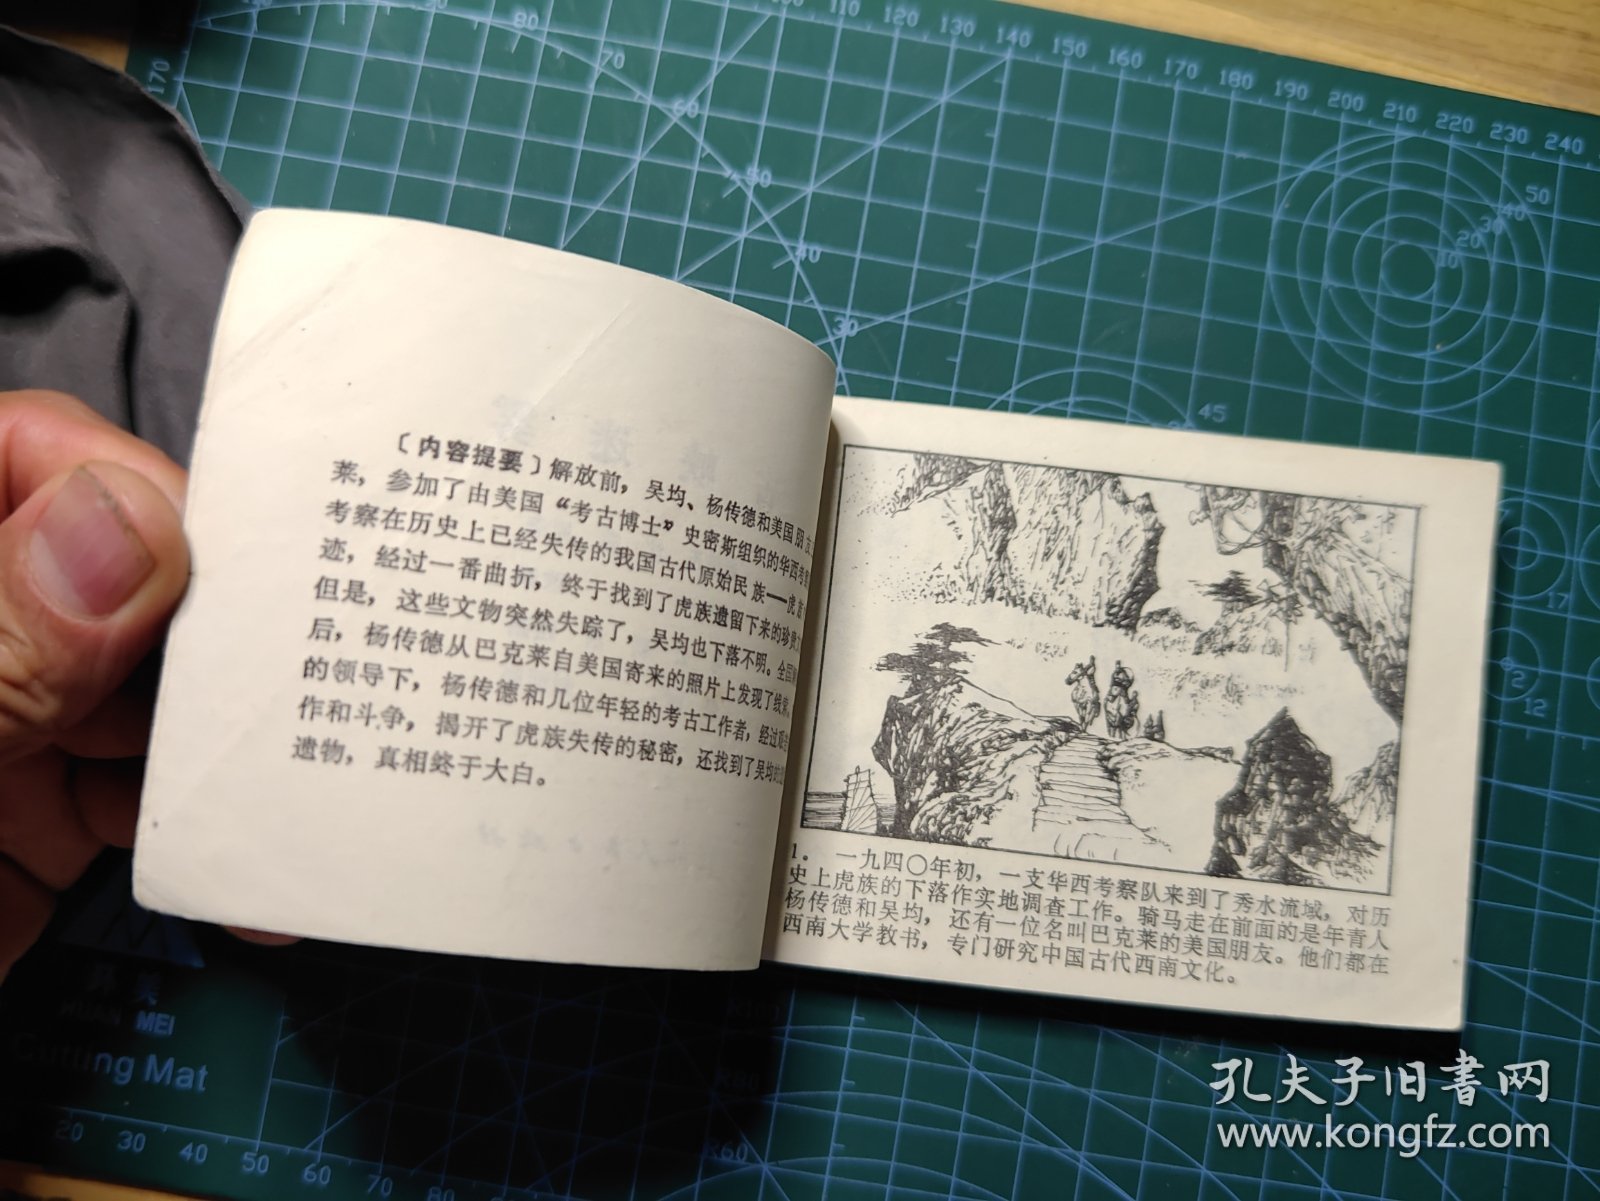 〔内容提要〕解放前，吴均、杨传德和美国朋友
莱，参加了由美国“考古博士”史密斯组织的华西考察
考察在历史上已经失传的我国古代原始民族——虎
迹，经过一番曲折，终于找到了虎族遗留下来的珍贵
但是，这些文物突然失踪了，吴均也下落不明。全国
后，杨传德从巴克莱自美国寄来的照片上发现了线索，
的领导下，杨传德和几位年轻的考古工作者，经过艰苦
作和斗争，揭开了虎族失传的秘密，还找到了吴均的
遗物，真相终于大白。
1. 一九四〇年初，一支华西考察队来到了秀水流域，对历
史上虎族的下落作实地调查工作。骑马走在前面的是年青人
杨传德和吴均，还有一位名叫巴克莱的美国朋友。他们都在
西南大学教书，专门研究中国古代西南文化。
110 120 130 140 150 160 170 180 190 200 210 220 230 240
170
80
70
60
50
40
30
50
40
30
20
10
45
17
2
12
MEI
Cutting Mat
20 30 40 50 60 70 80
孔夫子旧書网
www.kongfz.com